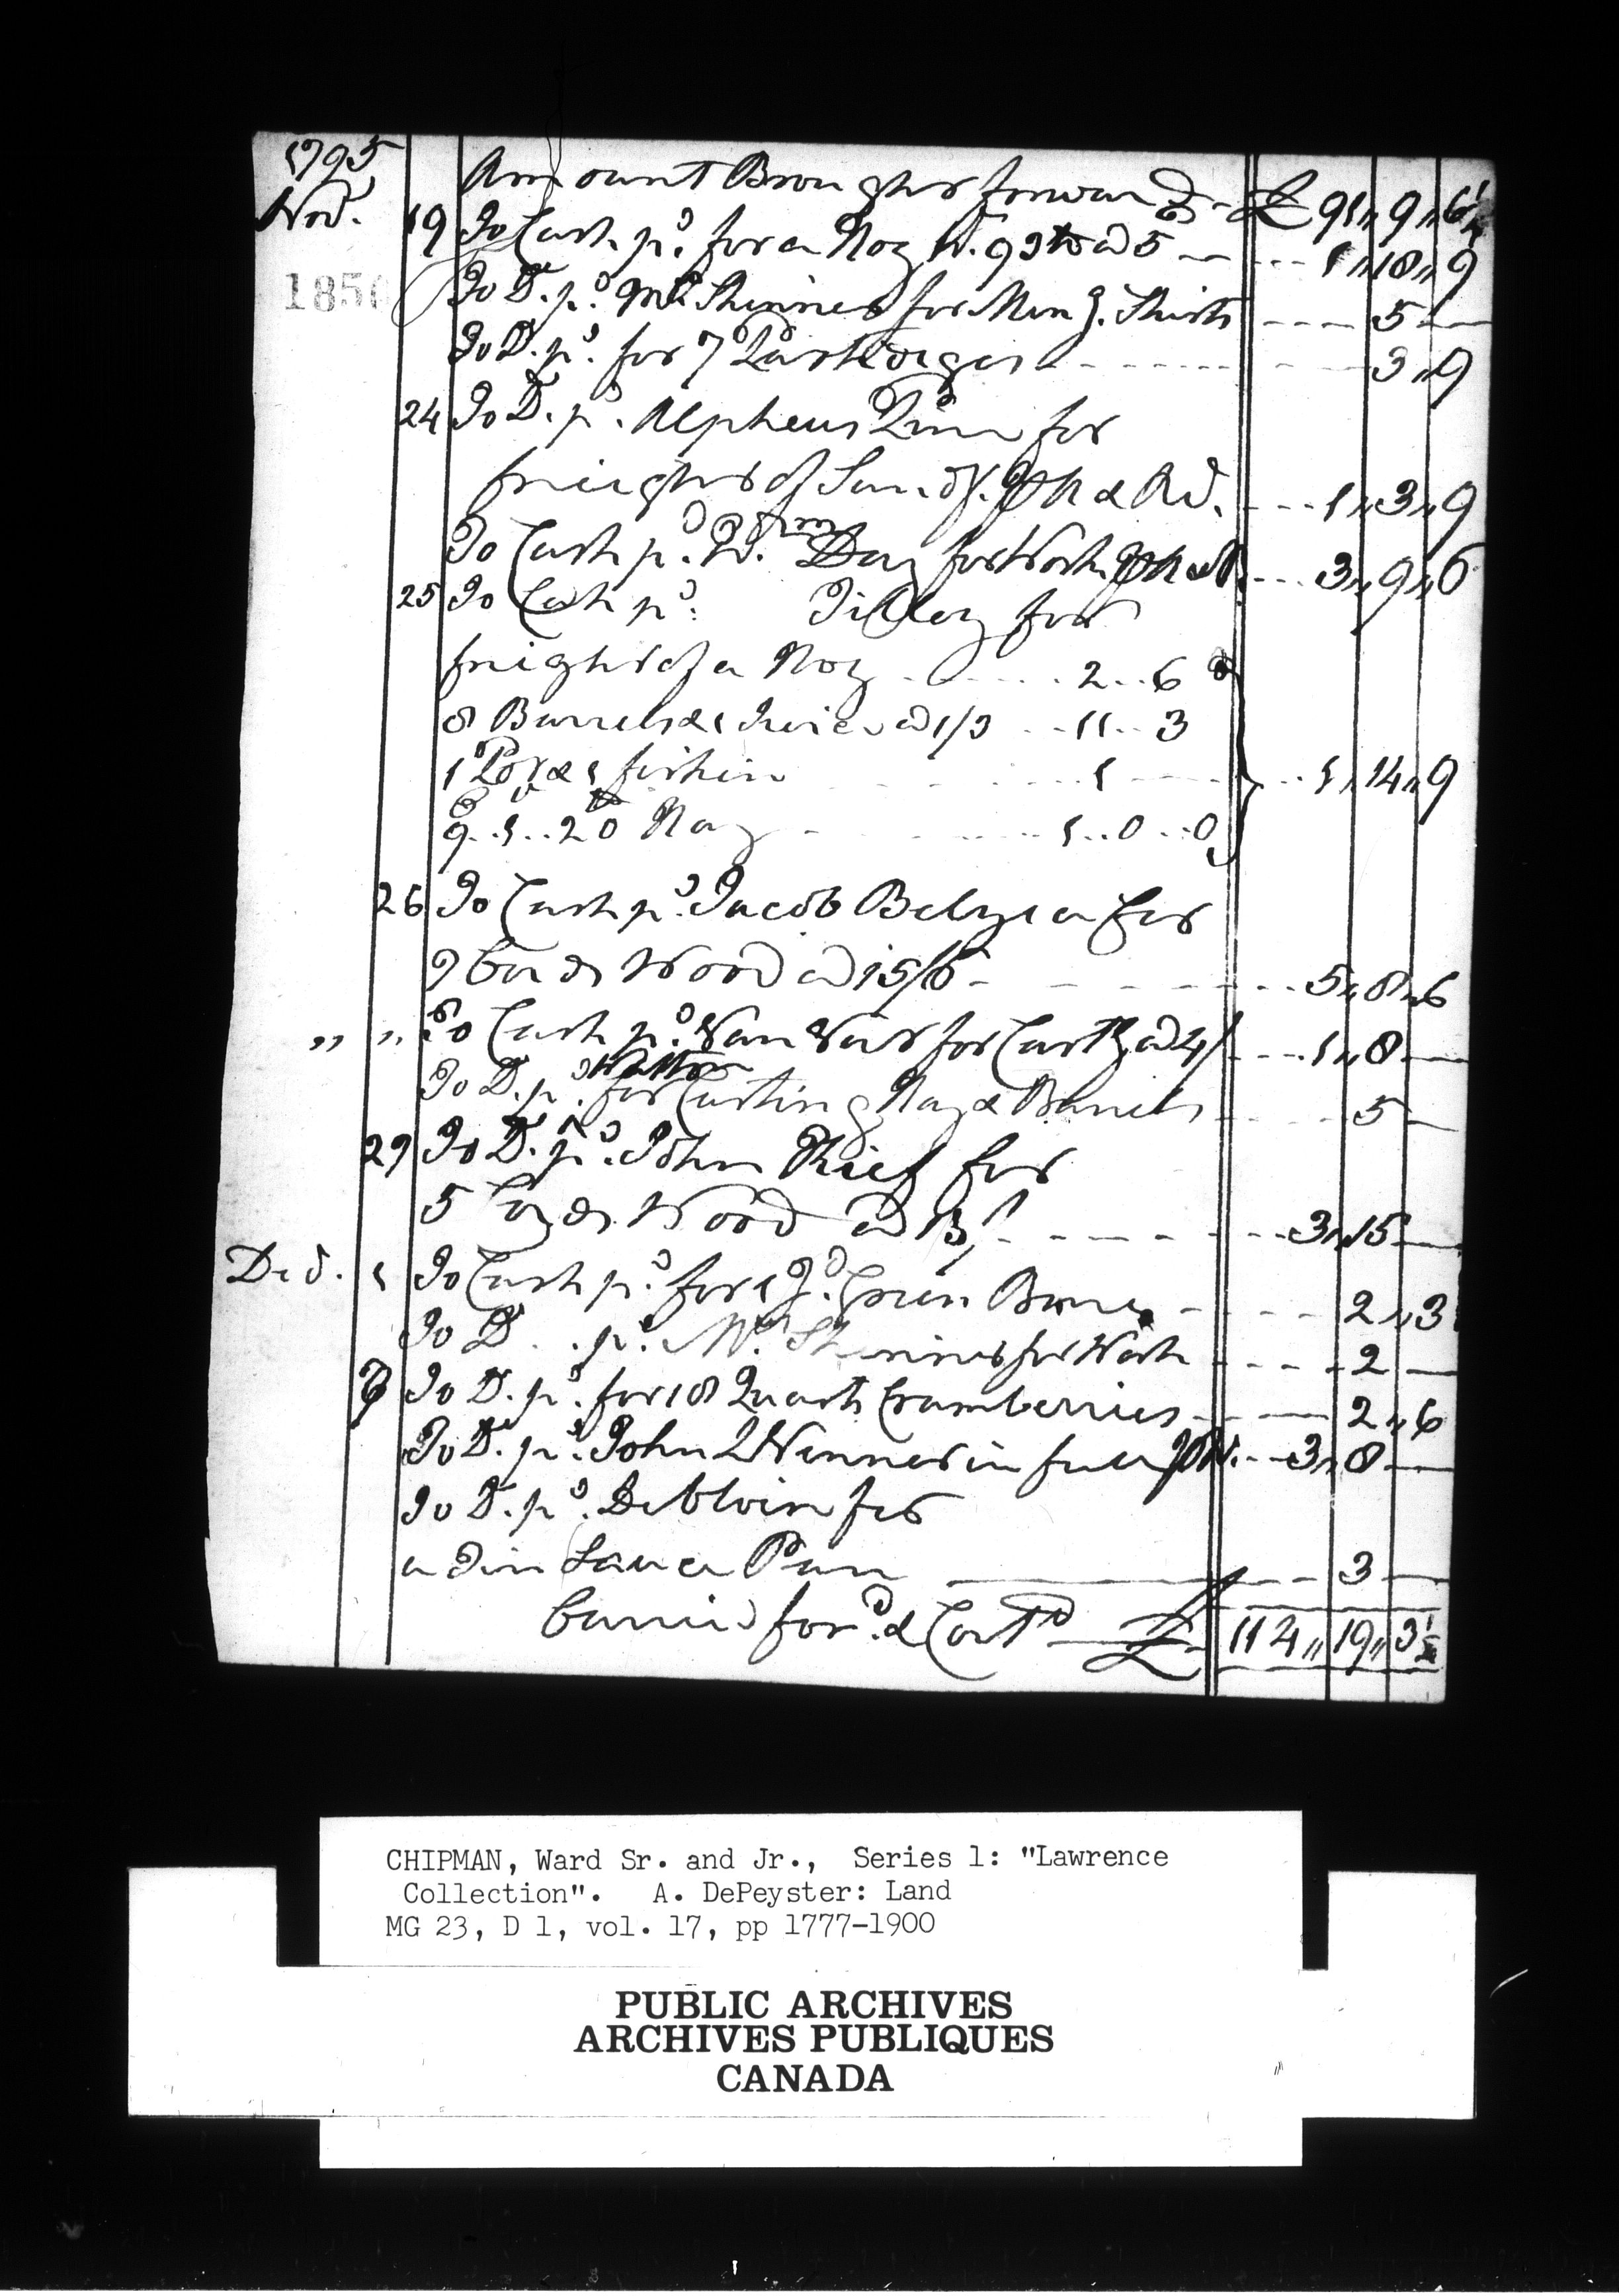 1795
Amount Brought forward - £ 91,, 9,, 6½
Novr. 19 To Cash pd. for a Hog Wt. 93 lb @ 5 - - - 1,, 18,, 9
1850
To Do. pd. Mrs. Skinner for Making Shirts - - - 5 —
To Do. pd. for 7 Partridges - - - 3,, 9
24 To Do. pd. Alpheus Pine for
freight of Sundy. - - - 1,, 3,, 9
To Cash pd. Wm. Day for Work - - - 3,, 9,, 6
25 To Cash pd. Tilley for
freight of a Hog - - - 2 .. 6
8 Barrels & 1 @ 1/3 - - 11 .. 3
1 Pot & 1 firkin - - - 1 —
9 .. 1 .. 20 Hay - - - 1 .. 0 .. 0 } - - 1,, 14,, 9
26 To Cash pd. Jacob Belyea for
7 Cords Wood @ 15/6 - - - 5,, 8,, 6
,, ,, To Cash pd. Van for Cartg @ 4/ - - - 1,, 8 —
To Do. pd. for Carting Hay & Barrels - - - 5 —
29 To Do. pd. John for
5 Cords Wood @ 15/ - - - 3,, 15 —
Decr. 1 To Cash pd. for 1 Yd. Green - - - 2,, 3
To Do. pd. Mrs. Skinner for Work - - - 2 —
To Do. pd. for 18 Quarts Cramberries - - - 2,, 6
To Do. pd. John in full - - 3,, 8 —
To Do. pd. Deblois for
a Tin Sauce Pan - - - 3 —
Carried ford. & Contd £ 114,, 19,, 3½
CHIPMAN, Ward Sr. and Jr., Series 1: "Lawrence
Collection". A. DePeyster: Land
MG 23, D 1, vol. 17, pp 1777-1900
PUBLIC ARCHIVES
ARCHIVES PUBLIQUES
CANADA